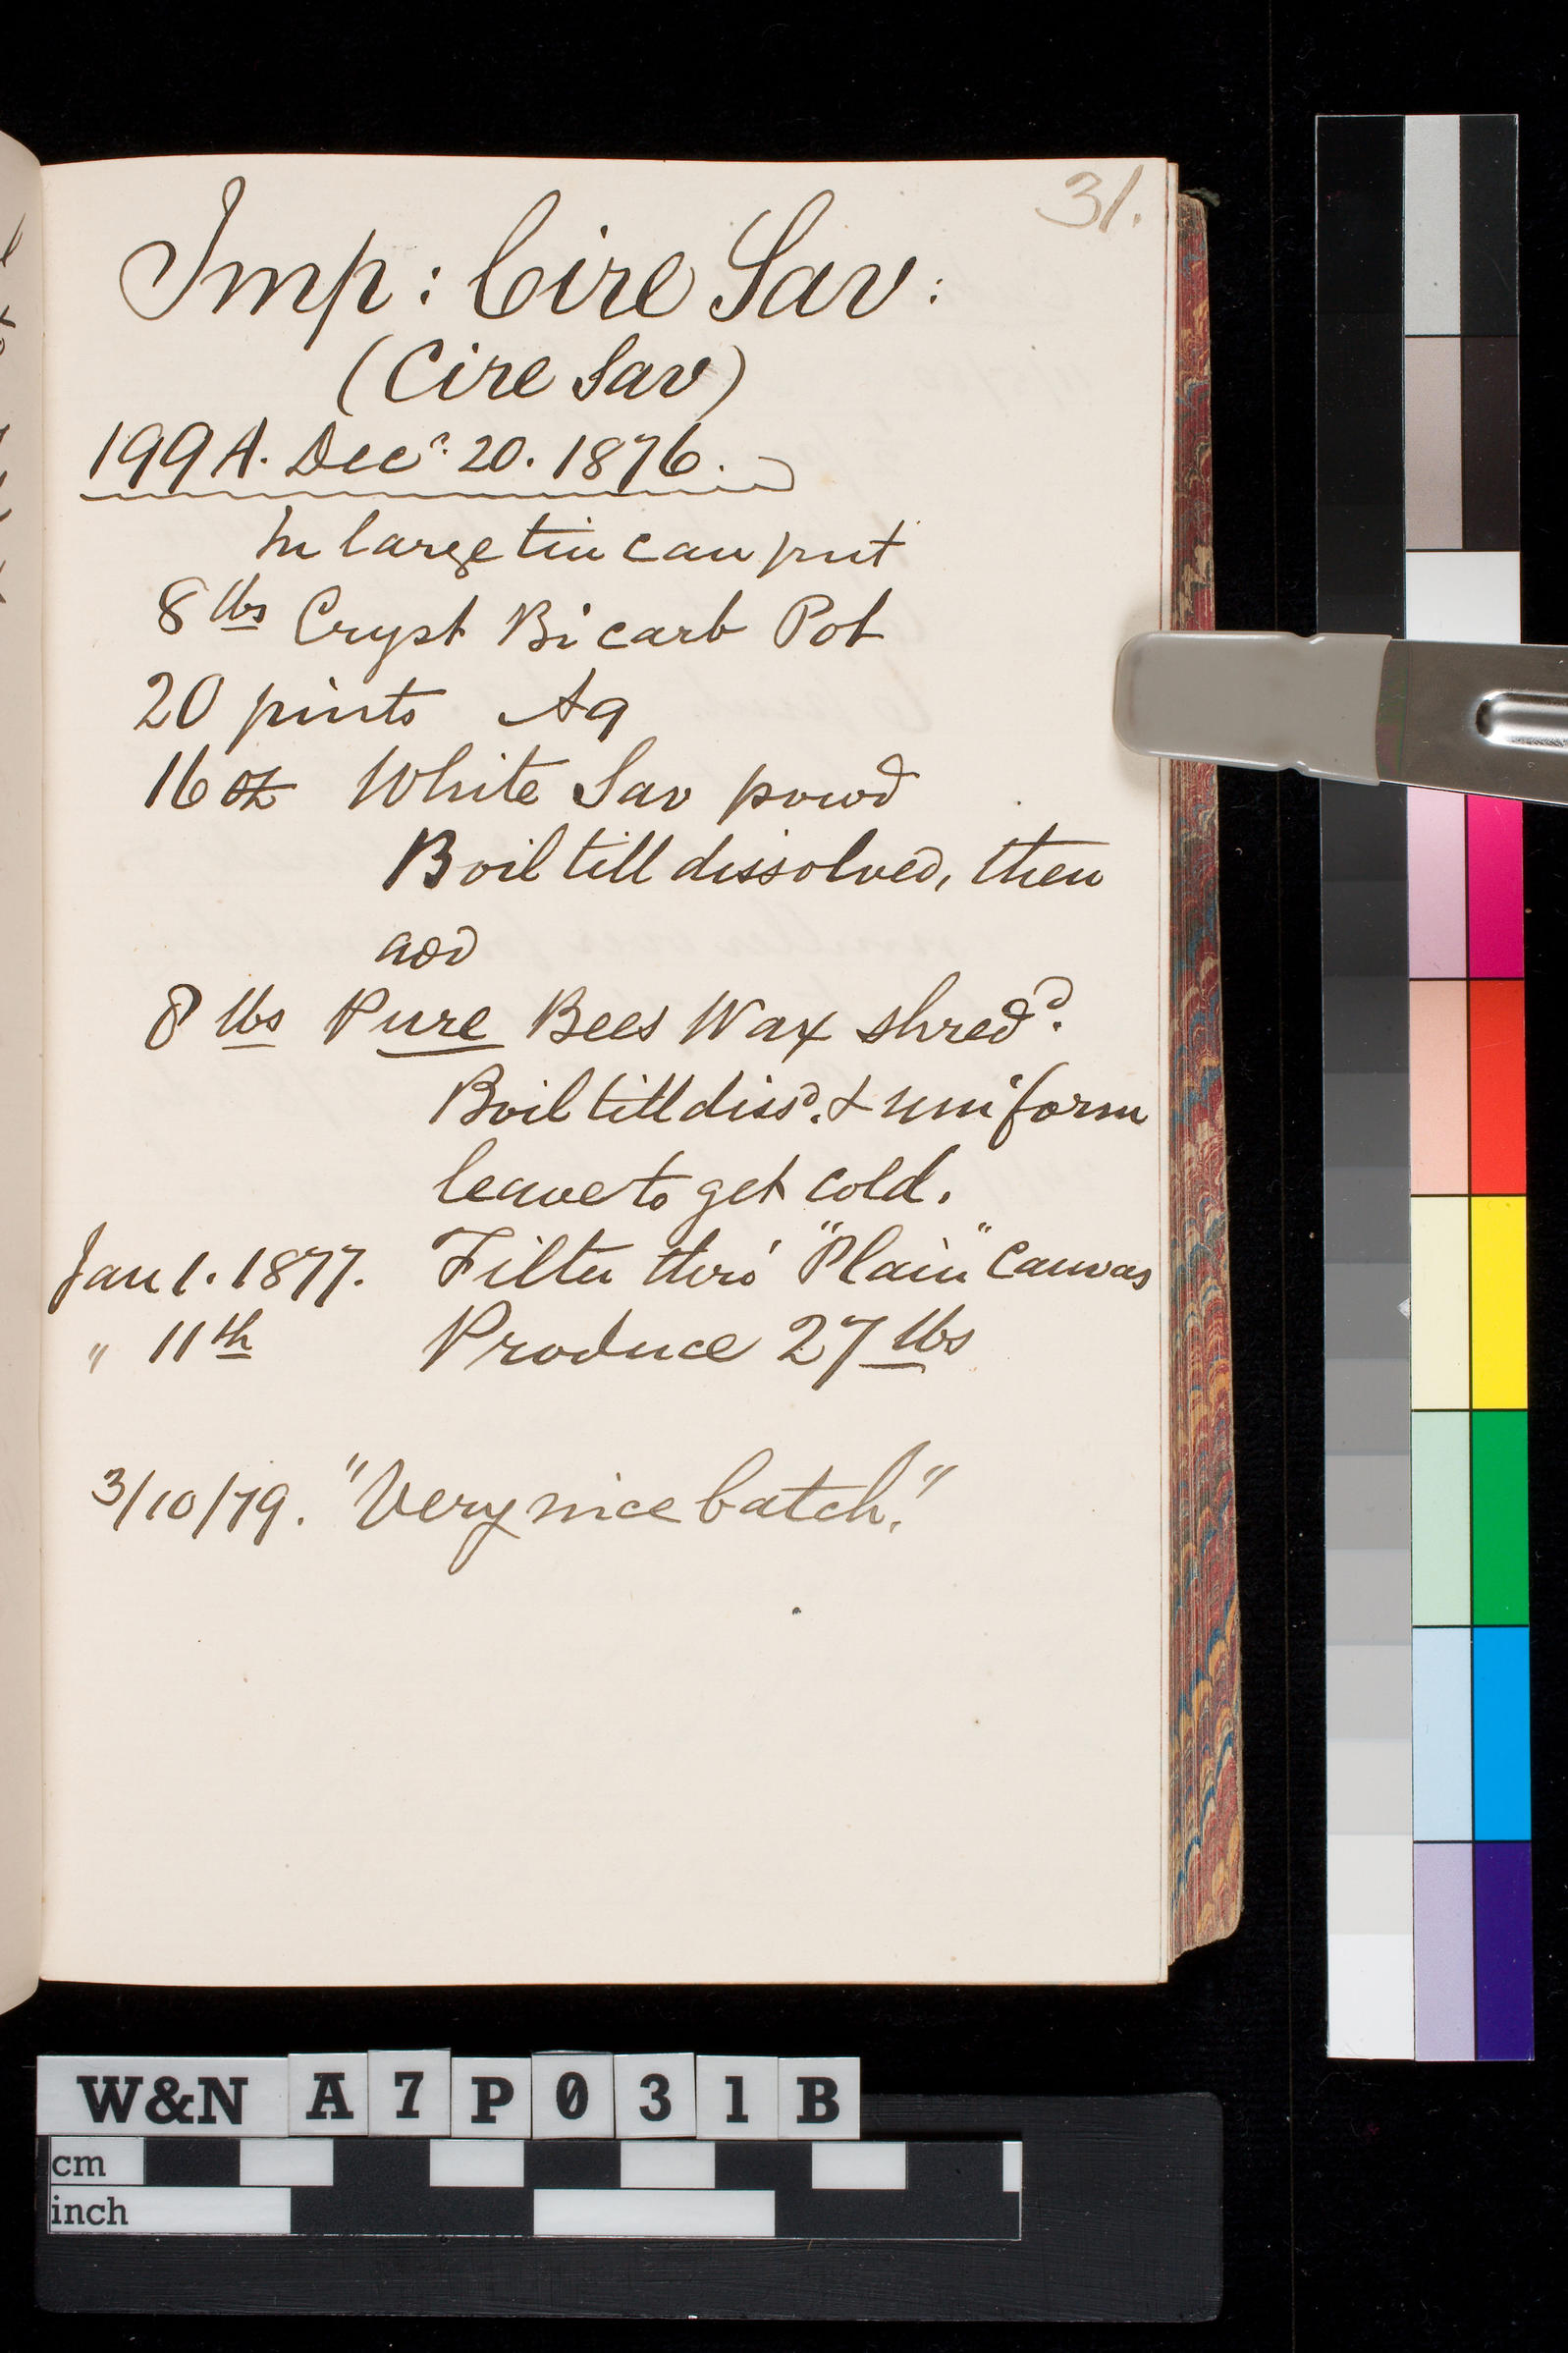 31.
Imp: Cire Sav:
(Cire Sav)
199A. Decr. 20. 1876.
In large tin can put
8 lbs Cryst Bicarb Pot
20 pints Aq
16 oz White Sav powd
Boil till dissolved, then
add
8 lbs Pure Bees Wax shredd.
Boil till dissd. & uniform
leave to get cold.
Jan 1. 1877. Filter thro' "Plain" Canvas
" 11th Produce 27 lbs
3/10/79. "Very nice batch."
W&N A7P031B
cm
inch